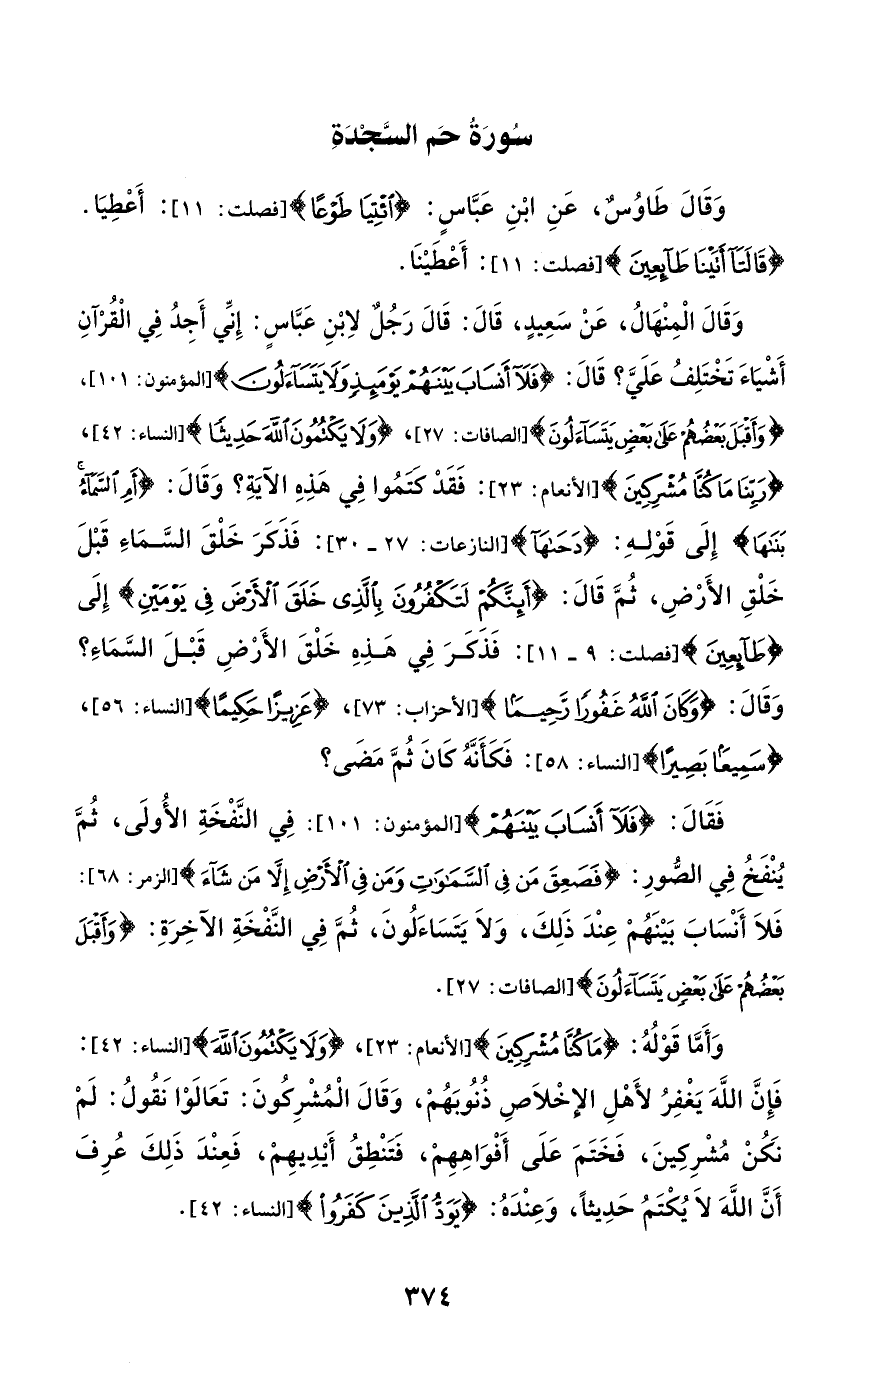 سُورَةُ حَم السَّجْدَةِ
وَقَالَ طَاوُسٌ، عَنِ ابْنِ عَبَّاسٍ: ﴿ٱئْتِيَا طَوْعًا﴾[فصلت: ١١]: أَعْطِيَا.
﴿قَالَتَآ أَتَيْنَا طَآئِعِينَ﴾[فصلت: ١١]: أَعْطَيْنَا.
وَقَالَ الْمِنْهَالُ، عَنْ سَعِيدٍ، قَالَ: قَالَ رَجُلٌ لِابْنِ عَبَّاسٍ: إِنِّي أَجِدُ فِي الْقُرْآنِ
أَشْيَاءَ تَخْتَلِفُ عَلَيَّ؟ قَالَ: ﴿فَلَآ أَنسَابَ بَيْنَهُمْ يَوْمَئِذٍ وَلَا يَتَسَآءَلُونَ﴾[المؤمنون: ١٠١]،
﴿وَأَقْبَلَ بَعْضُهُمْ عَلَىٰ بَعْضٍ يَتَسَآءَلُونَ﴾[الصافات: ٢٧]، ﴿وَلَا يَكْتُمُونَ ٱللَّهَ حَدِيثًا﴾[النساء: ٤٢]،
﴿رَبِّنَا مَا كُنَّا مُشْرِكِينَ﴾[الأنعام: ٢٣]: فَقَدْ كَتَمُوا فِي هَذِهِ الآيَةِ؟ وَقَالَ: ﴿أَمِ ٱلسَّمَآءُ ۚ
بَنَىٰهَا﴾ إِلَى قَوْلِهِ: ﴿دَحَىٰهَآ﴾[النازعات: ٢٧ ـ ٣٠]: فَذَكَرَ خَلْقَ السَّمَاءِ قَبْلَ
خَلْقِ الأَرْضِ، ثُمَّ قَالَ: ﴿أَئِنَّكُمْ لَتَكْفُرُونَ بِٱلَّذِى خَلَقَ ٱلْأَرْضَ فِى يَوْمَيْنِ﴾ إِلَى
﴿طَآئِعِينَ﴾[فصلت: ٩ ـ ١١]: فَذَكَرَ فِي هَذِهِ خَلْقَ الأَرْضِ قَبْلَ السَّمَاءِ؟
وَقَالَ: ﴿وَكَانَ ٱللَّهُ غَفُورًا رَّحِيمًا﴾[الأحزاب: ٧٣]، ﴿عَزِيزًا حَكِيمًا﴾[النساء: ٥٦]،
﴿سَمِيعًۢا بَصِيرًا﴾[النساء: ٥٨]: فَكَأَنَّهُ كَانَ ثُمَّ مَضَى؟
فَقَالَ: ﴿فَلَآ أَنسَابَ بَيْنَهُمْ﴾[المؤمنون: ١٠١]: فِي النَّفْخَةِ الأُولَى، ثُمَّ
يُنْفَخُ فِي الصُّورِ: ﴿فَصَعِقَ مَن فِى ٱلسَّمَٰوَٰتِ وَمَن فِى ٱلْأَرْضِ إِلَّا مَن شَآءَ﴾[الزمر: ٦٨]:
فَلاَ أَنْسَابَ بَيْنَهُمْ عِنْدَ ذَلِكَ، وَلاَ يَتَسَاءَلُونَ، ثُمَّ فِي النَّفْخَةِ الآخِرَةِ: ﴿وَأَقْبَلَ
بَعْضُهُمْ عَلَىٰ بَعْضٍ يَتَسَآءَلُونَ﴾[الصافات: ٢٧].
وَأَمَّا قَوْلُهُ: ﴿مَا كُنَّا مُشْرِكِينَ﴾[الأنعام: ٢٣]، ﴿وَلَا يَكْتُمُونَ ٱللَّهَ﴾[النساء: ٤٢]:
فَإِنَّ اللَّهَ يَغْفِرُ لأَهْلِ الإِخْلاَصِ ذُنُوبَهُمْ، وَقَالَ الْمُشْرِكُونَ: تَعَالَوْا نَقُولُ: لَمْ
نَكُنْ مُشْرِكِينَ، فَخَتَمَ عَلَى أَفْوَاهِهِمْ، فَتَنْطِقُ أَيْدِيهِمْ، فَعِنْدَ ذَلِكَ عُرِفَ
أَنَّ اللَّهَ لاَ يُكْتَمُ حَدِيثاً، وَعِنْدَهُ: ﴿يَوَدُّ ٱلَّذِينَ كَفَرُوا۟﴾[النساء: ٤٢].
٣٧٤